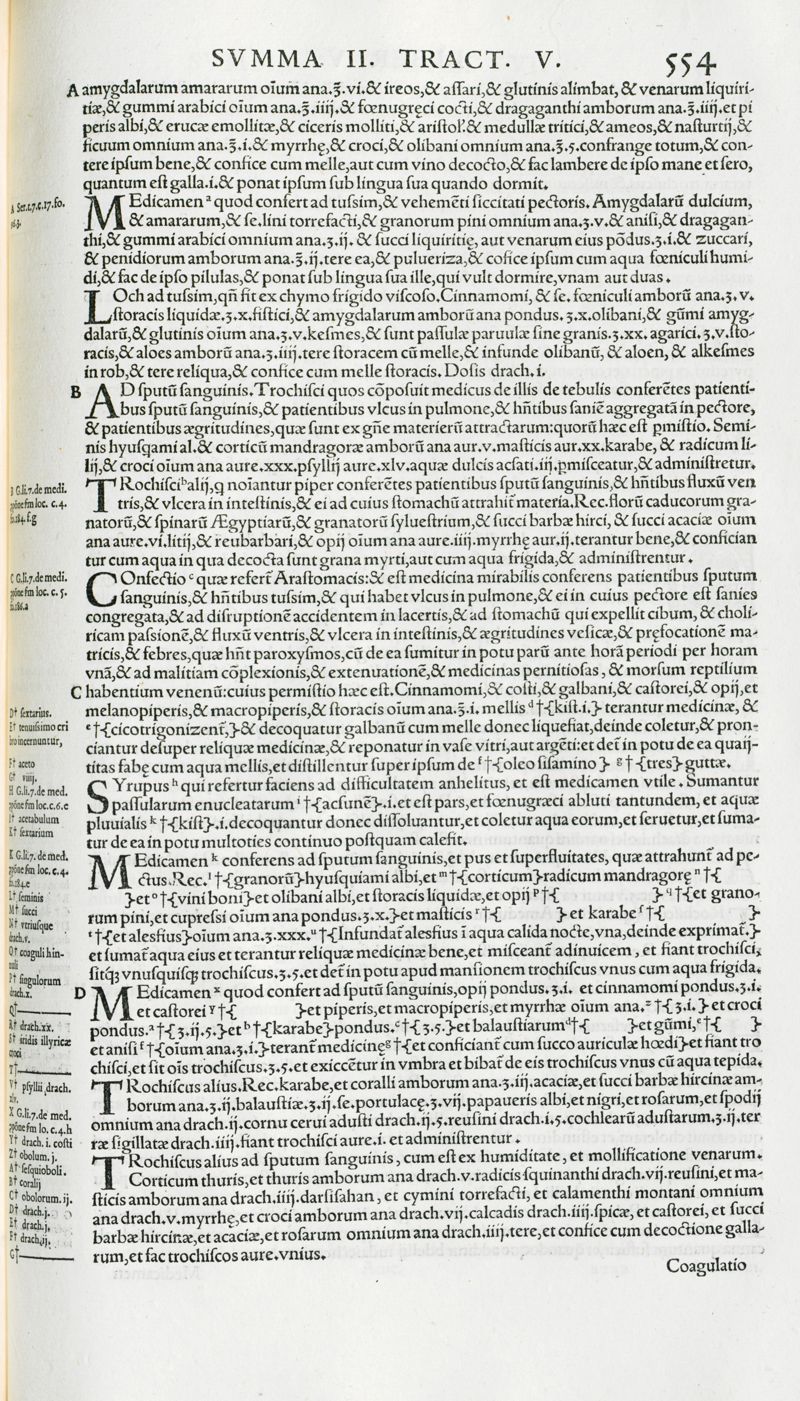 SVMMA II. TRACT. V. 554
A amygdalarum amararum oīum ana.ʒ̄.vi.& ireos,& aſſari,& glutinis alimbat, & venarum liquiri-
tiæ,& gummi arabici oīum ana.ʒ̄.iiij.& fœnugręci cocti,& dragaganthi amborum ana.ʒ̄.iiij.et pi
peris albi,& erucæ emollitæ,& ciceris molliti,& ariſtol.& medullæ tritici,& ameos,& naſturtij,&
ficuum omnium ana.ʒ̄.i.& myrrhę,& croci,& olibani omnium ana.ʒ̄.5.confrange totum,& con-
tere ipſum bene,& confice cum melle,aut cum vino decocto,& fac lambere de ipſo mane et ſero,
quantum eſt galla.i.& ponat ipſum ſub lingua ſua quando dormit.
A Ser.t.7.c.17.fo.
MEdicamen a quod confert ad tuſsim,& vehemēti ſiccitati pectoris. Amygdalarū dulcium,
& amararum,& ſe.lini torrefacti,& granorum pini omnium ana.ʒ.v.& aniſi,& dragagan-
thi,& gummi arabici omnium ana.ʒ.ij. & ſucci liquiritię, aut venarum eius pōdus.ʒ.i.& zuccari,
& penidiorum amborum ana.ʒ̄.ij.tere ea,& pulueriza,& cōfice ipſum cum aqua fœniculi humi-
di,& fac de ipſo pilulas,& ponat ſub lingua ſua ille,qui vult dormire,vnam aut duas.
LOch ad tuſsim,qñ fit ex chymo frigido viſcoſo.Cinnamomi, & ſe. fœniculi amborū ana.ʒ.v.
ſtoracis liquidæ.ʒ.x.fiſtici,& amygdalarum amborū ana pondus.ʒ.x.olibani,& gūmi amyg-
dalarū,& glutinis oīum ana.ʒ.v.keſmes,& ſunt paſſulæ paruulæ ſine granis.ʒ.xx. agarici.ʒ.v.ſto-
racis,& aloes amborū ana.ʒ.iiij.tere ſtoracem cū melle,& infunde olibanū, & aloen, & alkeſmes
in rob,& tere reliqua,& confice cum melle ſtoracis. Doſis drach.i.
B AD ſputū ſanguinis.Trochiſci quos cōpoſuit medicus de illis de tebulis conferētes patienti-
bus ſputū ſanguinis,& patientibus vlcus in pulmone,& hñtibus ſaniē aggregatā in pectore,
& patientibus ægritudines,quæ ſunt ex gñe materierū attractarum:quorū hæc eſt pmiſtio. Semi-
nis hyuſqami al.& corticū mandragoræ amborū ana aur.v.maſticis aur.xx.karabe, & radicum li-
lij,& croci oīum ana aure.xxx.pſyllij aure.xlv.aquæ dulcis acſati.iij.pmiſceatur,& adminiſtretur.
B G.li.7.de medi.
TRochiſci b alij,q noīantur piper conferētes patientibus ſputū ſanguinis,& hñtibus fluxū ven
tris,& vlcera in inteſtinis,& ei ad cuius ſtomachū attrahit materia.Rec.florū caducorum gra-
natorū,& ſpinarū Ægyptiarū,& granatorū ſylueſtrium,& ſucci barbæ hirci, & ſucci acaciæ oīum
ana aure.vi.litij,& reubarbari,& opij oīum ana aure.iiij.myrrhę aur.ij.terantur bene,& confician
tur cum aqua in qua decocta ſunt grana myrti,aut cum aqua frigida,& adminiſtrentur.
C G.li.7.de medi.
COnfectio c quæ refert Araſtomacis:& eſt medicina mirabilis conferens patientibus ſputum
ſanguinis,& hñtibus tuſsim,& qui habet vlcus in pulmone,& ei in cuius pectore eſt ſanies
congregata,& ad diſruptionē accidentem in lacertis,& ad ſtomachū qui expellit cibum, & choli-
ricam paſsionē,& fluxū ventris,& vlcera in inteſtinis,& ægritudines veſicæ,& pręfocationē ma-
tricis,& febres,quæ hñt paroxyſmos,cū de ea ſumitur in potu parū ante horā periodi per horam
vnā,& ad malitiam cōplexionis,& extenuationē,& medicinas pernitioſas, & morſum reptilium
C habentium venenū:cuius permiſtio hæc eſt.Cinnamomi,& coſti,& galbani,& caſtorei,& opij,et
melanopiperis,& macropiperis,& ſtoracis oīum ana.ʒ̄.i. mellis d †{kiſt.i.} terantur medicinæ, &
e †{cicotrigonizent,}& decoquatur galbanū cum melle donec liquefiat,deinde coletur,& pron-
ciantur deſuper reliquæ medicinæ,& reponatur in vaſe vitri,aut argēti:et det in potu de ea quaij-
titas fabę cum aqua mellis,et diſtillentur ſuper ipſum de f †{oleo ſiſamino} g †{tres}guttæ.
D† ſextarius.
E† tenuiſsimo cri
bro incernuntur,
F† aceto
G† viiij.
H G.li.7.de med.
SYrupus h qui refertur faciens ad difficultatem anhelitus, et eſt medicamen vtile. Sumantur
paſſularum enucleatarum i †{acſunē}.i.et eſt pars,et fœnugræci abluti tantundem, et aquæ
pluuialis k †{kiſt}.i.decoquantur donec diſſoluantur,et coletur aqua eorum,et ſeruetur,et ſuma-
tur de ea in potu multoties continuo poſtquam calefit.
I† acetabulum
K† ſextarium
K G.li.7. de med.
MEdicamen k conferens ad ſputum ſanguinis,et pus et ſuperfluitates, quæ attrahunt ad pe-
ctus.Rec. l †{granorū}hyuſquiami albi,et m †{corticum}radicum mandragorę n †{
}et o †{vini boni}et olibani albi,et ſtoracis liquidæ,et opij p †{ } q †{et grano-
rum pini,et cupreſsi oīum ana pondus.ʒ.x.}et maſticis r †{ } et karabe ſ †{ }
t †{et aleſtius}oīum ana.ʒ.xxx. u †{Infundat aleſtius ī aqua calida nocte,vna,deinde exprimat.}
et ſumat aqua eius et terantur reliquæ medicinæ bene,et miſceant adinuicem, et fiant trochiſci,
ſitq3 vnuſquiſq3 trochiſcus.ʒ.5.et det in potu apud manſionem trochiſcus vnus cum aqua frigida.
L† ſeminis
M† ſucci
N† vtriuſque
drach.v.
O† coaguli hin-
nuli
P† ſingulorum
drach.x.
Q†
R† drach.xx.
S† iridis illyricæ
croci
T†
V† pſyllij drach.
xlv.
D MEdicamen x quod confert ad ſputū ſanguinis,opij pondus.ʒ.i. et cinnamomi pondus.ʒ.i.
et caſtorei y †{ }et piperis,et macropiperis,et myrrhæ oīum ana. z †{ʒ.i.}et croci
pondus. a †{ʒ.ij.5.}et b †{karabe}pondus. c †{ʒ.5.}et balauſtiarum d †{ }et gūmi, e †{ }
et aniſi f †{oīum ana.ʒ.i.}terant medicinę g †{et conficiant cum ſucco auriculæ hœdi}et fiant tro
chiſci,et ſit oīs trochiſcus.ʒ.5.et exiccētur in vmbra et bibat de eis trochiſcus vnus cū aqua tepida.
X G.li.7. de med.
Y† drach.i. coſti
Z† obolum.j.
A† ſeſquioboli.
B† coralij
C† obolorum.ij.
D† drach.j.
E† drach.j.
F† drach.ij.
G†
TRochiſcus alius.Rec.karabe,et coralli amborum ana.ʒ.iij.acaciæ,et ſucci barbæ hircinæ am-
borum ana.ʒ.ij.balauſtiæ.ʒ.ij.ſe.portulacę.ʒ.vij.papaueris albi,et nigri,et roſarum,et ſpodij
omnium ana drach.ij.cornu cerui aduſti drach.ij.5.reuſini drach.i.5.cochlearū aduſtarum.ʒ.ij.ter
ræ ſigillatæ drach.iiij.fiant trochiſci aure.i.et adminiſtrentur.
TRochiſcus alius ad ſputum ſanguinis, cum eſt ex humiditate, et mollificatione venarum.
Corticum thuris,et thuris amborum ana drach.v.radicis ſquinanthi drach.vij.reuſini,et ma-
ſticis amborum ana drach.iiij.darſiſahan, et cymini torrefacti, et calamenthi montani omnium
ana drach.v.myrrhę,et croci amborum ana drach.vij.calcadis drach.iiij.ſpicæ, et caſtorei, et ſucci
barbæ hircinæ,et acaciæ,et roſarum omnium ana drach.iiij.tere,et confice cum decoctione galla-
rum,et fac trochiſcos aure.vnius.
Coagulatio